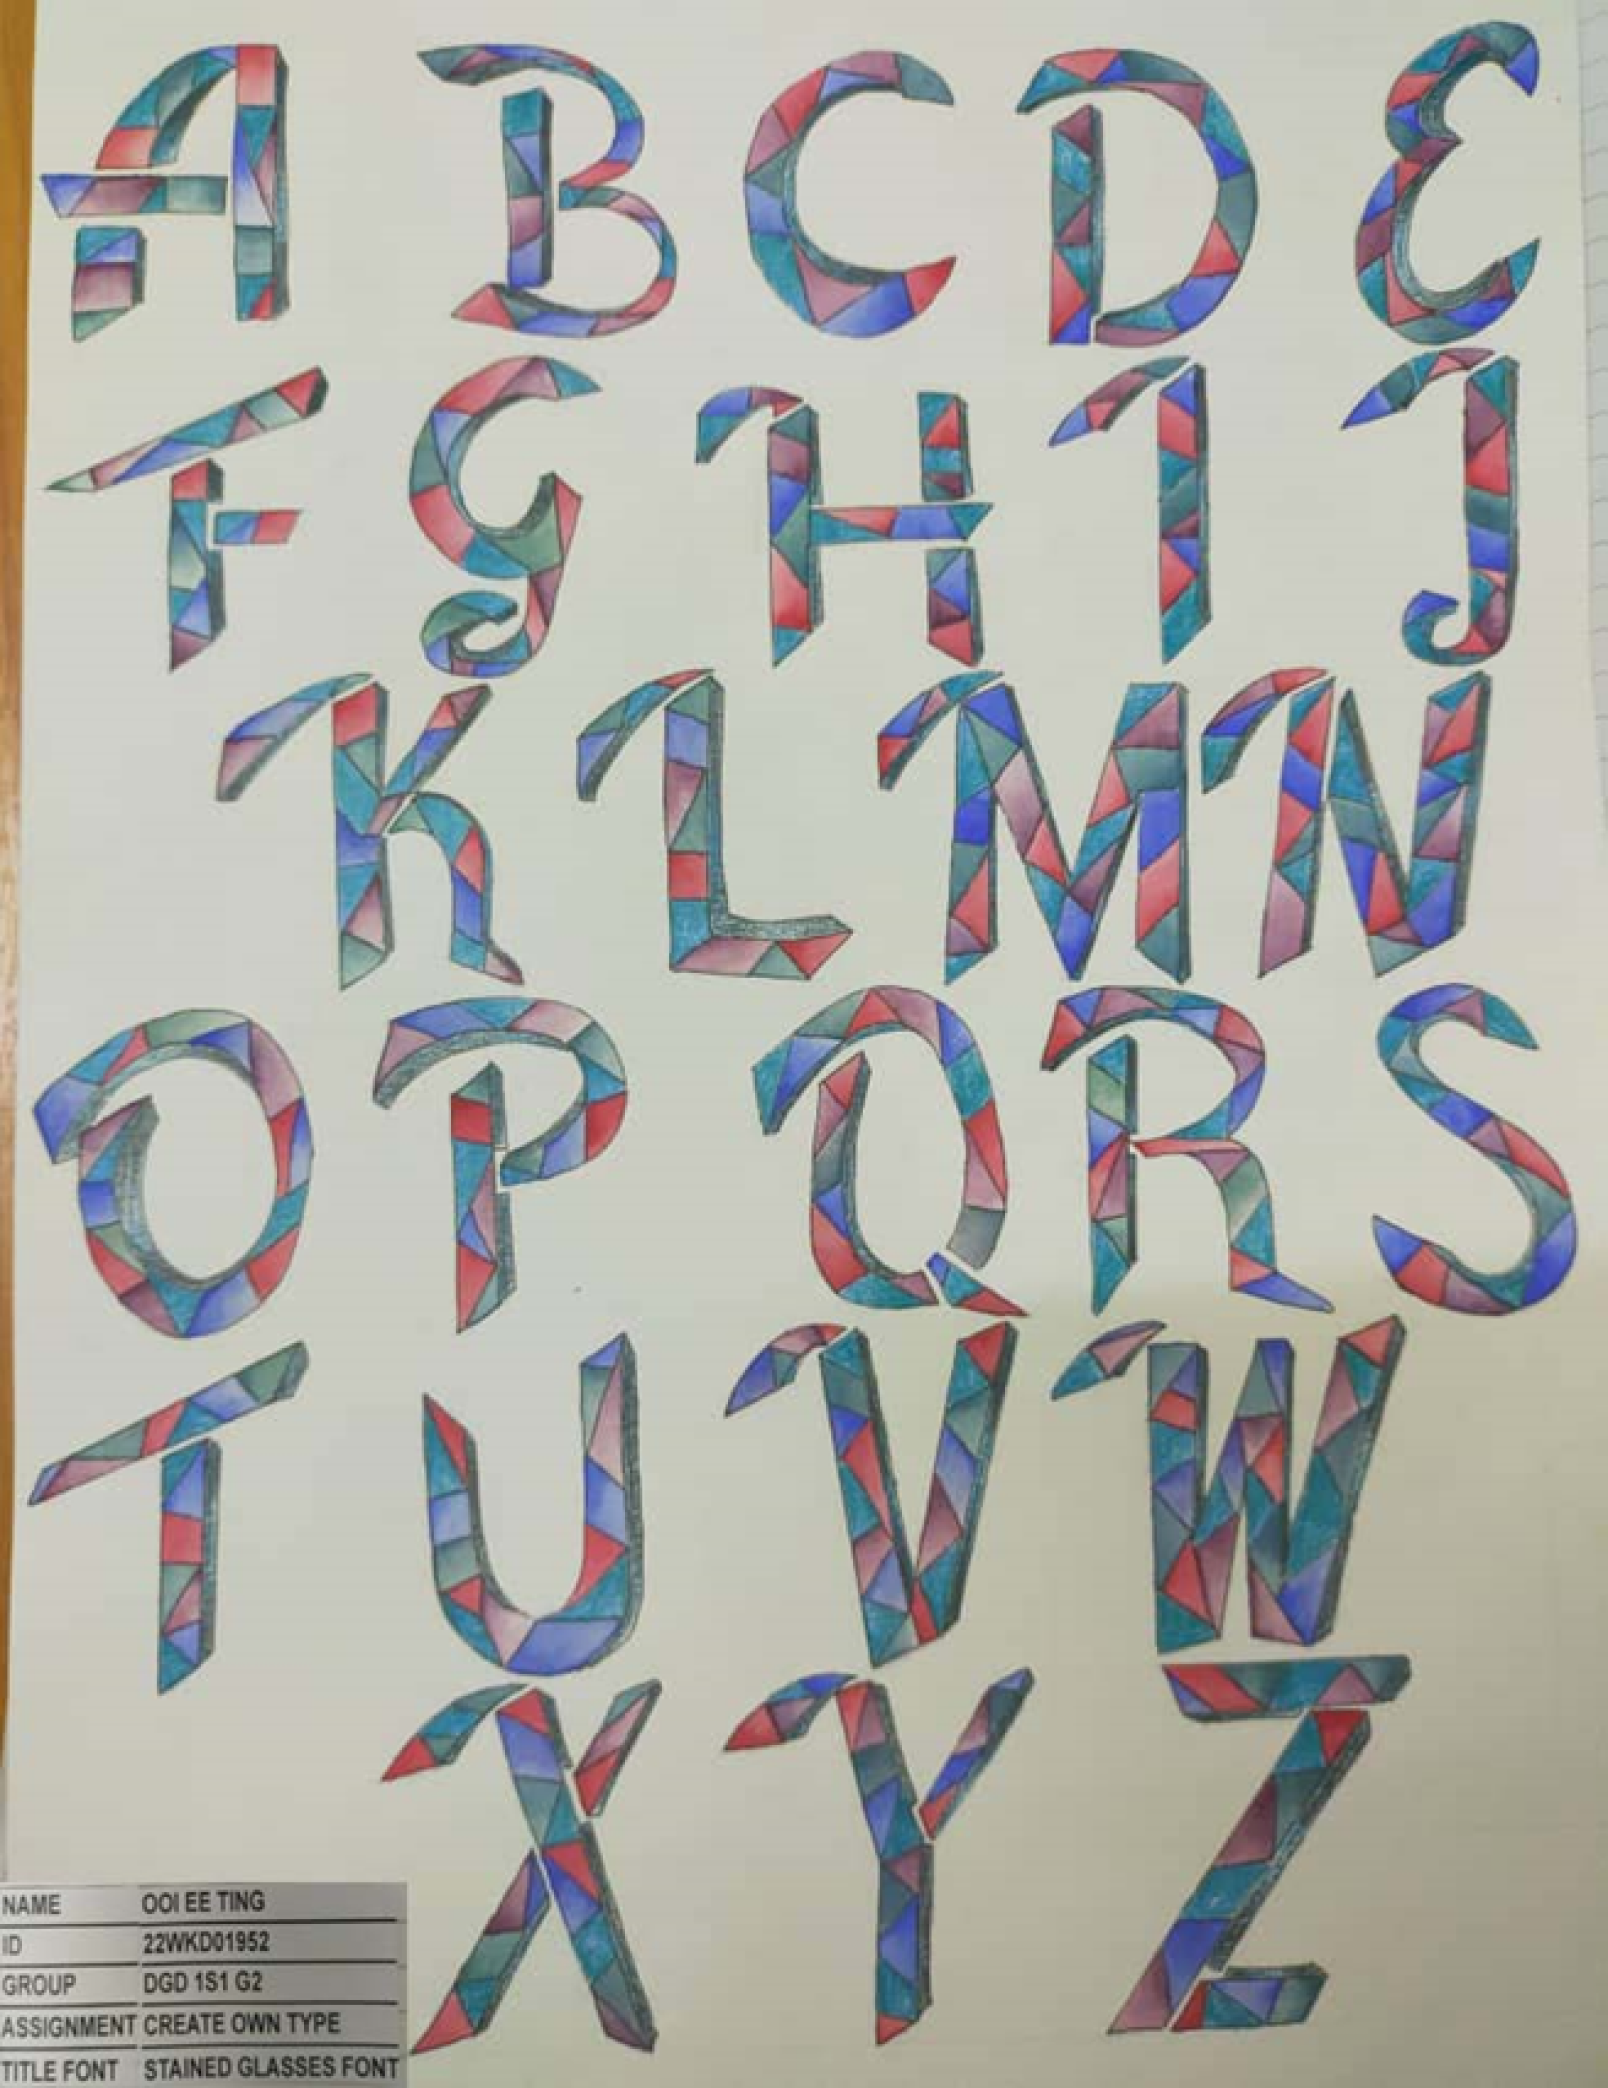 A B C D E
F G H I J
K L M N
O P Q R S
T U V W
X Y Z
NAME OOI EE TING
ID 22WKD01952
GROUP DGD 1S1 G2
ASSIGNMENT CREATE OWN TYPE
TITLE FONT STAINED GLASSES FONT